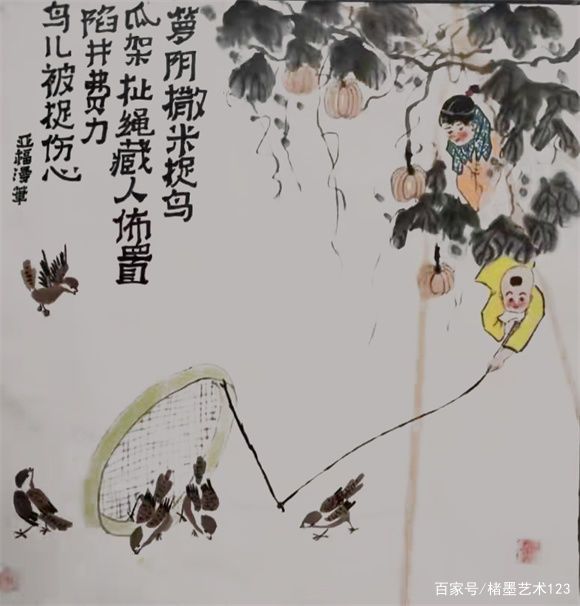 萝阴撒米捉鸟
瓜架扯绳藏人佈置
陷井费力
鸟儿被捉伤心
亚福漫筆
百家号/楮墨艺术123